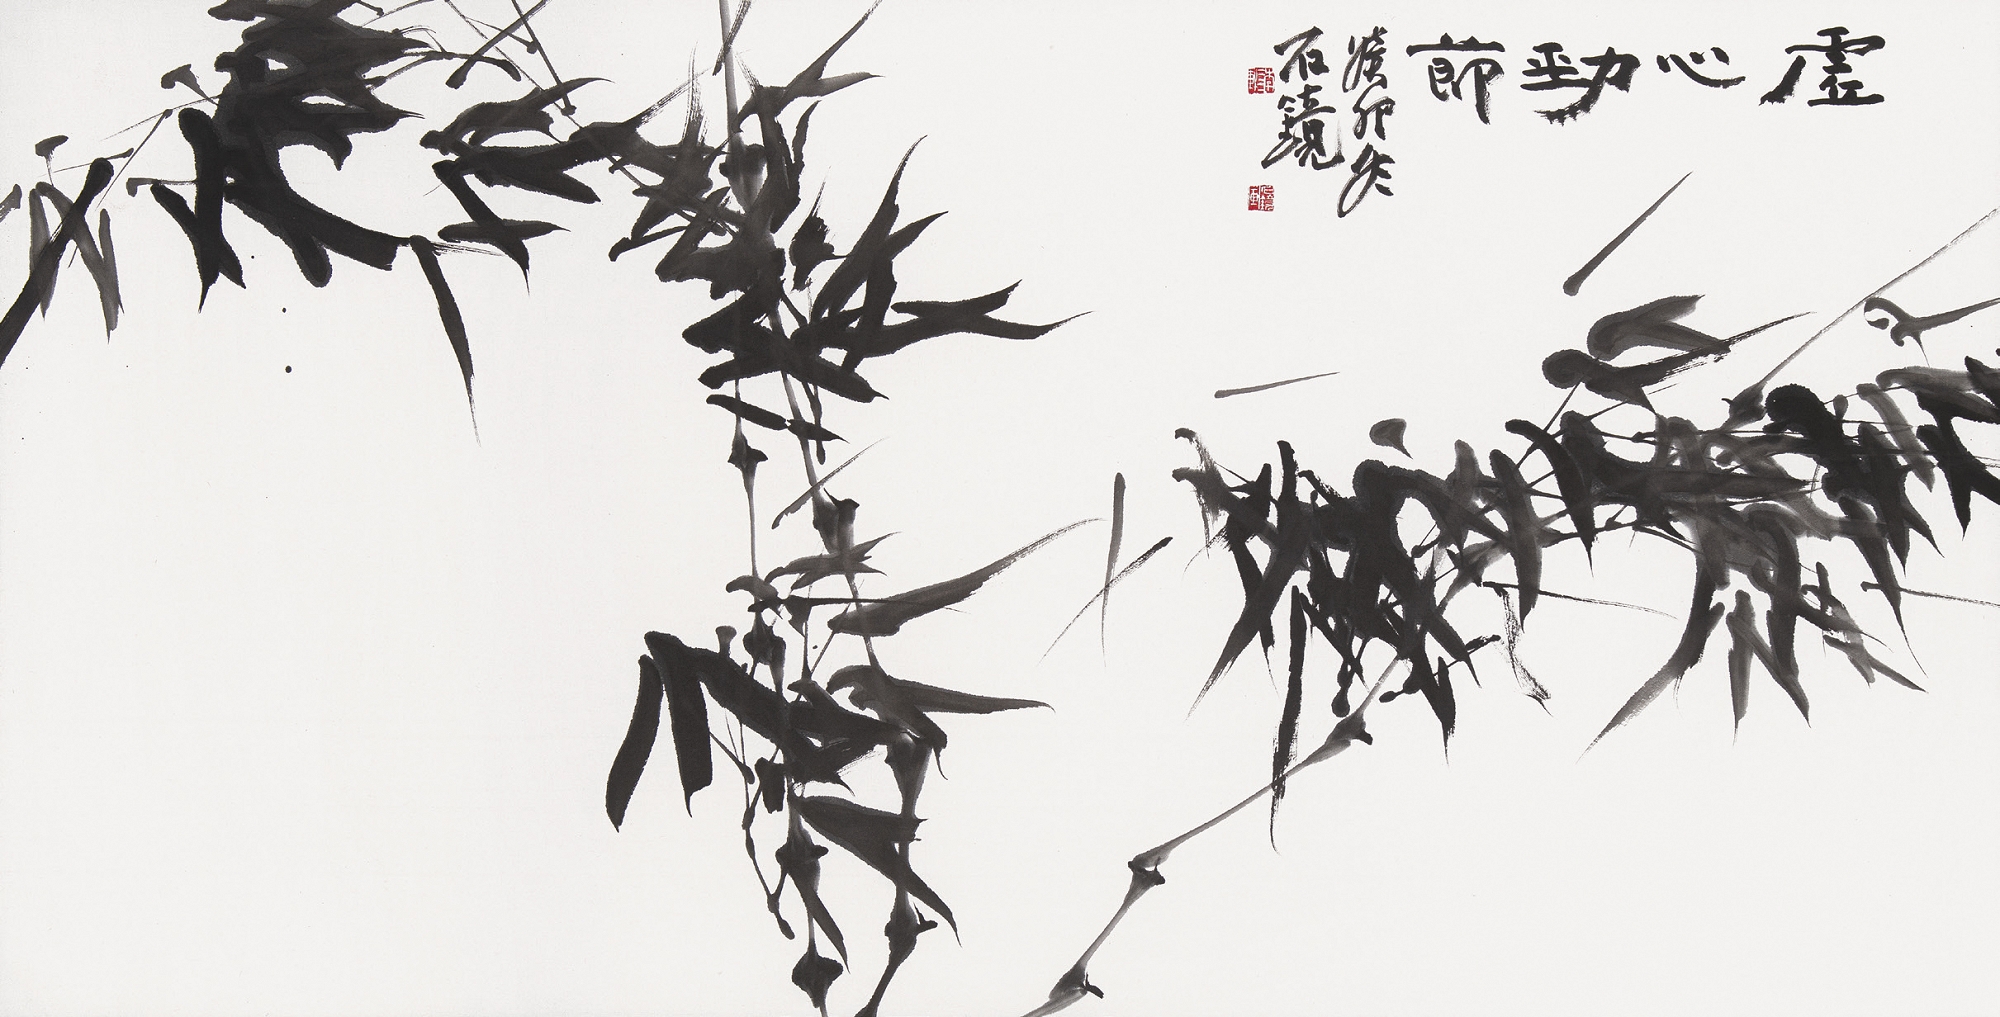 虛心勁節
癸卯冬
石鏡